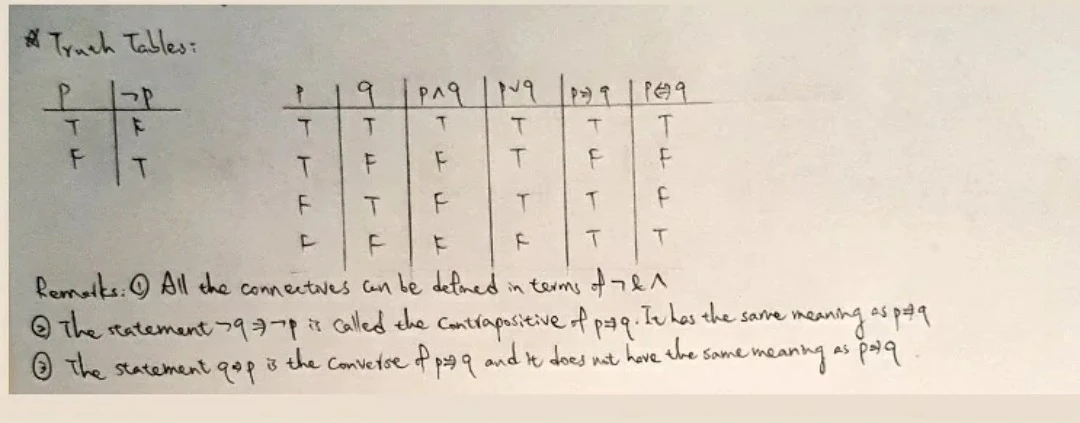 * Truth Tables:
P | ¬P
T | F
F | T
P | q | p∧q | p∨q | p⇒q | p⇔q
T | T | T | T | T | T
T | F | F | T | F | F
F | T | F | T | T | F
F | F | F | F | T | T
Remarks: ① All the connectives can be defined in terms of ¬ & ∧
② The statement ¬q⇒¬p is called the Contrapositive of p⇒q. It has the same meaning as p⇒q
③ The statement q⇒p is the Converse of p⇒q and it does not have the same meaning as p⇒q